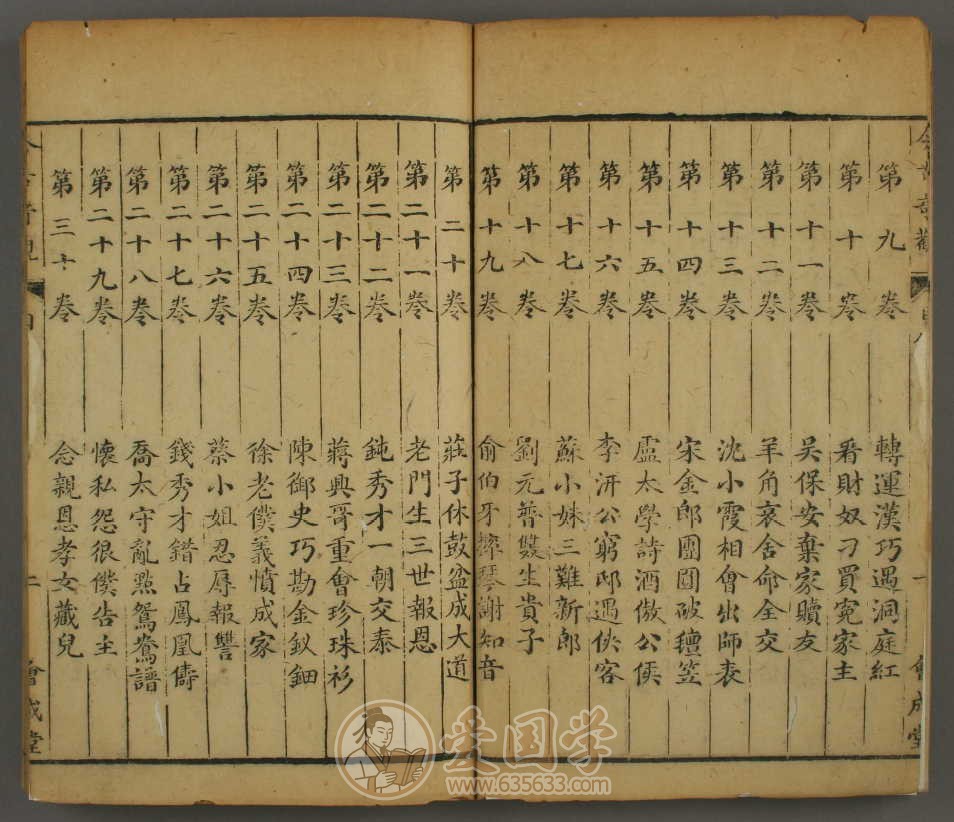 今古奇觀
一
會成堂
第九卷 轉運漢巧遇洞庭紅
第十卷 看財奴刁買冤家主
第十一卷 吳保安棄家贖友
第十二卷 羊角哀舍命全交
第十三卷 沈小霞相會出師表
第十四卷 宋金郎團圓破氊笠
第十五卷 盧太學詩酒傲公侯
第十六卷 李汧公窮邸遇俠客
第十七卷 蘇小妹三難新郎
第十八卷 劉元普雙生貴子
第十九卷 俞伯牙摔琴謝知音
第二十卷 莊子休鼓盆成大道
第二十一卷 老門生三世報恩
第二十二卷 鈍秀才一朝交泰
第二十三卷 蔣興哥重會珍珠衫
第二十四卷 陳御史巧勘金釵鈿
第二十五卷 徐老僕義憤成家
第二十六卷 蔡小姐忍辱報讐
第二十七卷 錢秀才錯占鳳凰儔
第二十八卷 喬太守亂點鴛鴦譜
第二十九卷 懷私怨很僕告主
第三十卷 念親恩孝女藏兒
會成堂
爱国学
www.635633.com